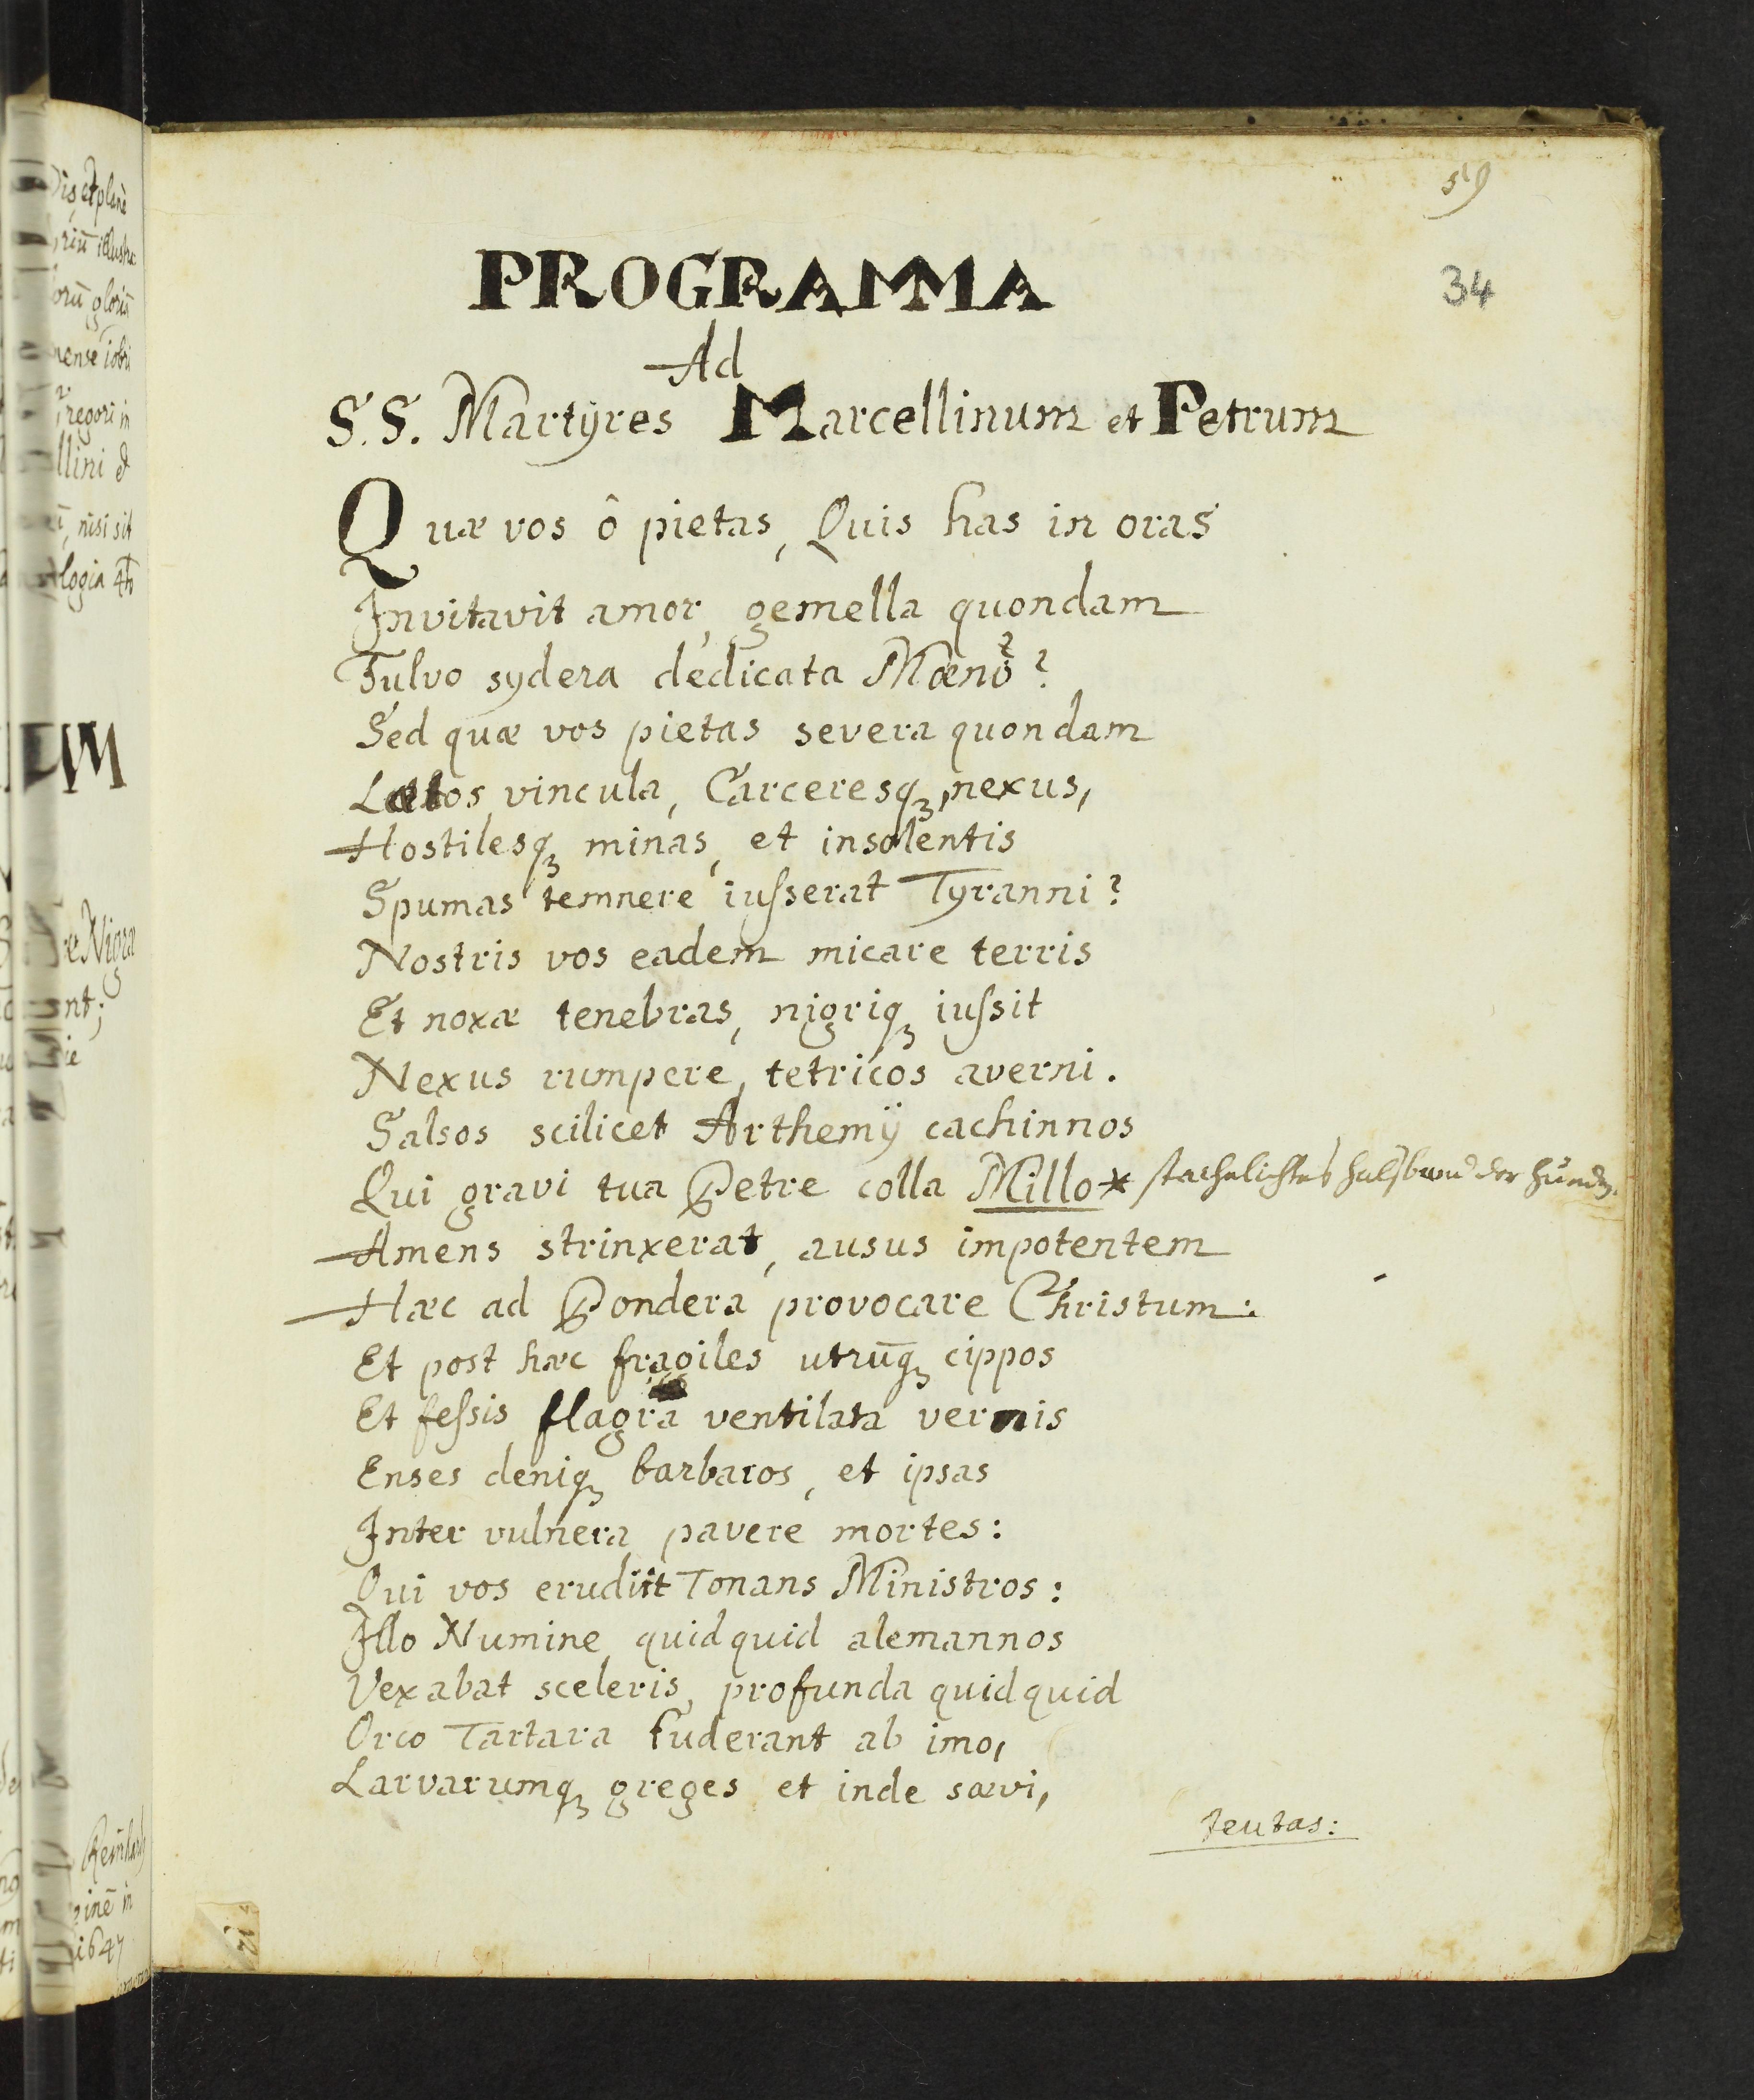 59
34
PROGRAMMA
Ad
S.S. Martÿres Marcellinum et Petrum
Quæ vos ô pietas, Quis has in oras
Invitavit amor, gemella quondam
Fulvo sydera dedicata Mœno?
Sed quæ vos pietas severa quondam
Lætos vincula, Carceresqꝫ, nexus,
Hostilesqꝫ minas, et insolentis
Spumas temnere iuſserat Tyranni?
Nostris vos eadem micare terris
Et noxæ tenebras, nigriqꝫ iuſsit
Nexus rumpere, tetricos averni.
Salsos scilicet Arthemÿ cachinnos
Qui gravi tua Petre colla Millo * stachelichtes halsband der hunden.
Amens strinxerat, ausus impotentem
Hæc ad Pondera provocare Christum:
Et post hæc fragiles utrūqꝫ cippos
Et feſsis flagra ventilata vernis
Enses deniqꝫ barbaros, et ipsas
Inter vulnera, pavere mortes:
Qui vos erudiit Tonans Ministros:
Illo Numine, quidquid alemannos
Vexabat sceleris, profunda quidquid
Orco Tartara fuderant ab imo,
Larvarumqꝫ greges et inde sævi,
teutas: